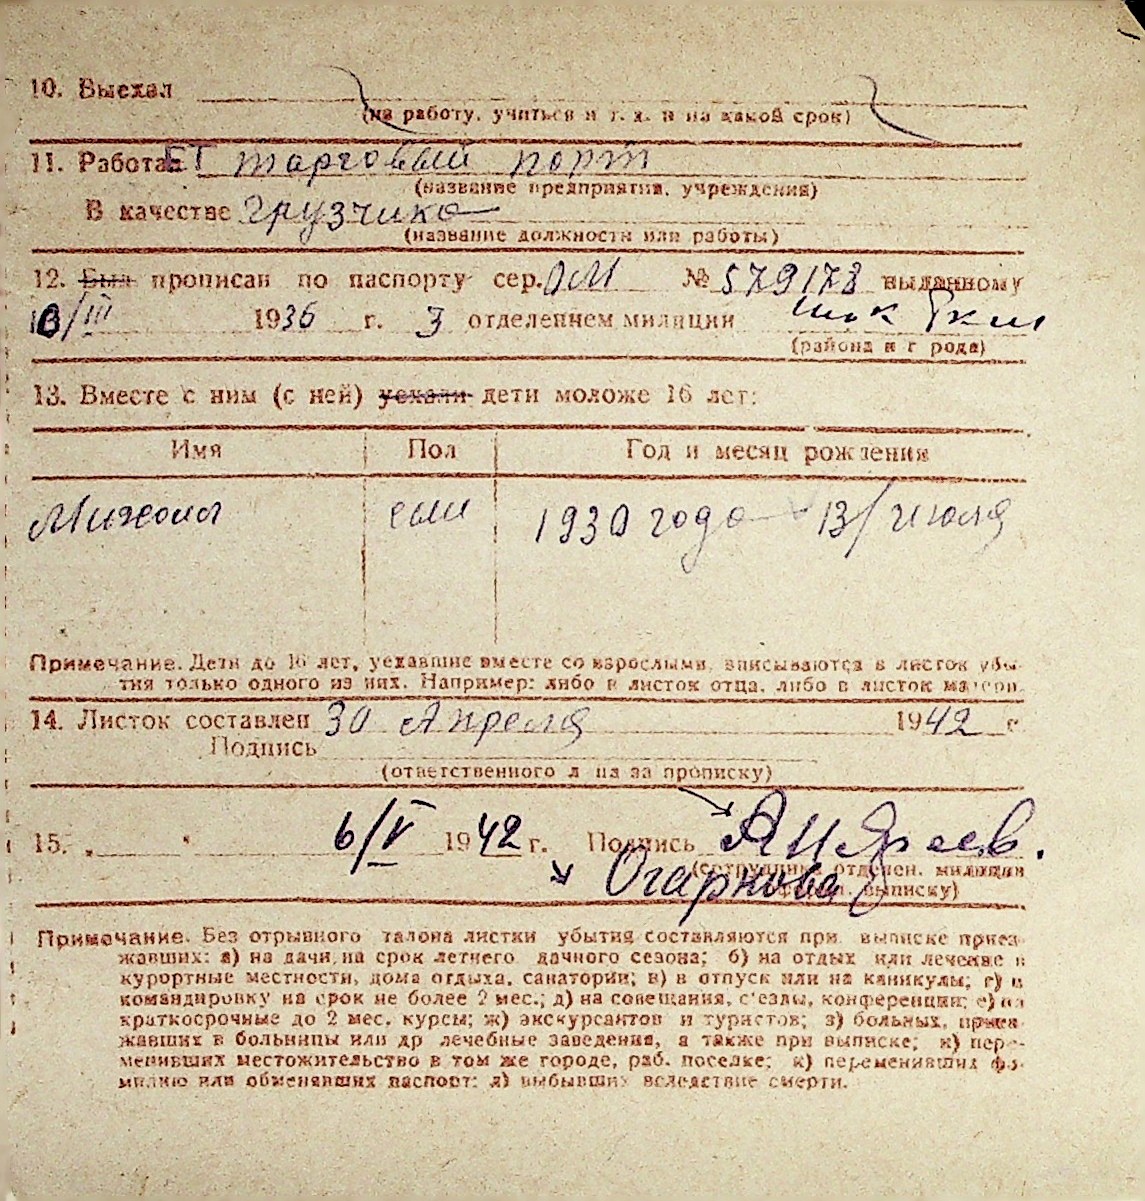 10. Выехал
(на работу, учиться и т. д. и на какой срок)
11. Работает торговый порт
(название предприятия, учреждения)
В качестве грузчика
(название должности или работы)
12. Был прописан по паспорту сер. № 579178 выданному
/III 1936 г. 3 отделением милиции
(района и г рода)
13. Вместе с ним (с ней) уехали дети моложе 16 лет:
Имя Пол Год и месяц рождения
Михаил сын 1930 года 13/июля
Примечание. Дети до 16 лет, уехавшие вместе со взрослыми, вписываются в листок убы-
тия только одного из них. Например: либо в листок отца, либо в листок матери.
14. Листок составлен 30 Апреля 1942 г
Подпись
(ответственного л ца за прописку)
15. „ " 6/V 1942 г. Подпись
(сотрудника отделен. милиции
Огарнова выписку)
Примечание. Без отрывного талона листки убытия составляются при выписке приез-
жавших: а) на дачи на срок летнего дачного сезона; б) на отдых или лечение в
курортные местности, дома отдыха, санатории; в) в отпуск или на каникулы; г) в
командировку на срок не более 2 мес.; д) на совещания, с'езды, конференции; е) на
краткосрочные до 2 мес. курсы; ж) экскурсантов и туристов; з) больных, приез-
жавших в больницы или др лечебные заведения, а также при выписке; и) пере-
менивших местожительство в том же городе, раб. поселке; к) переменивших фа-
милию или обменявших паспорт; л) выбывших вследствие смерти.